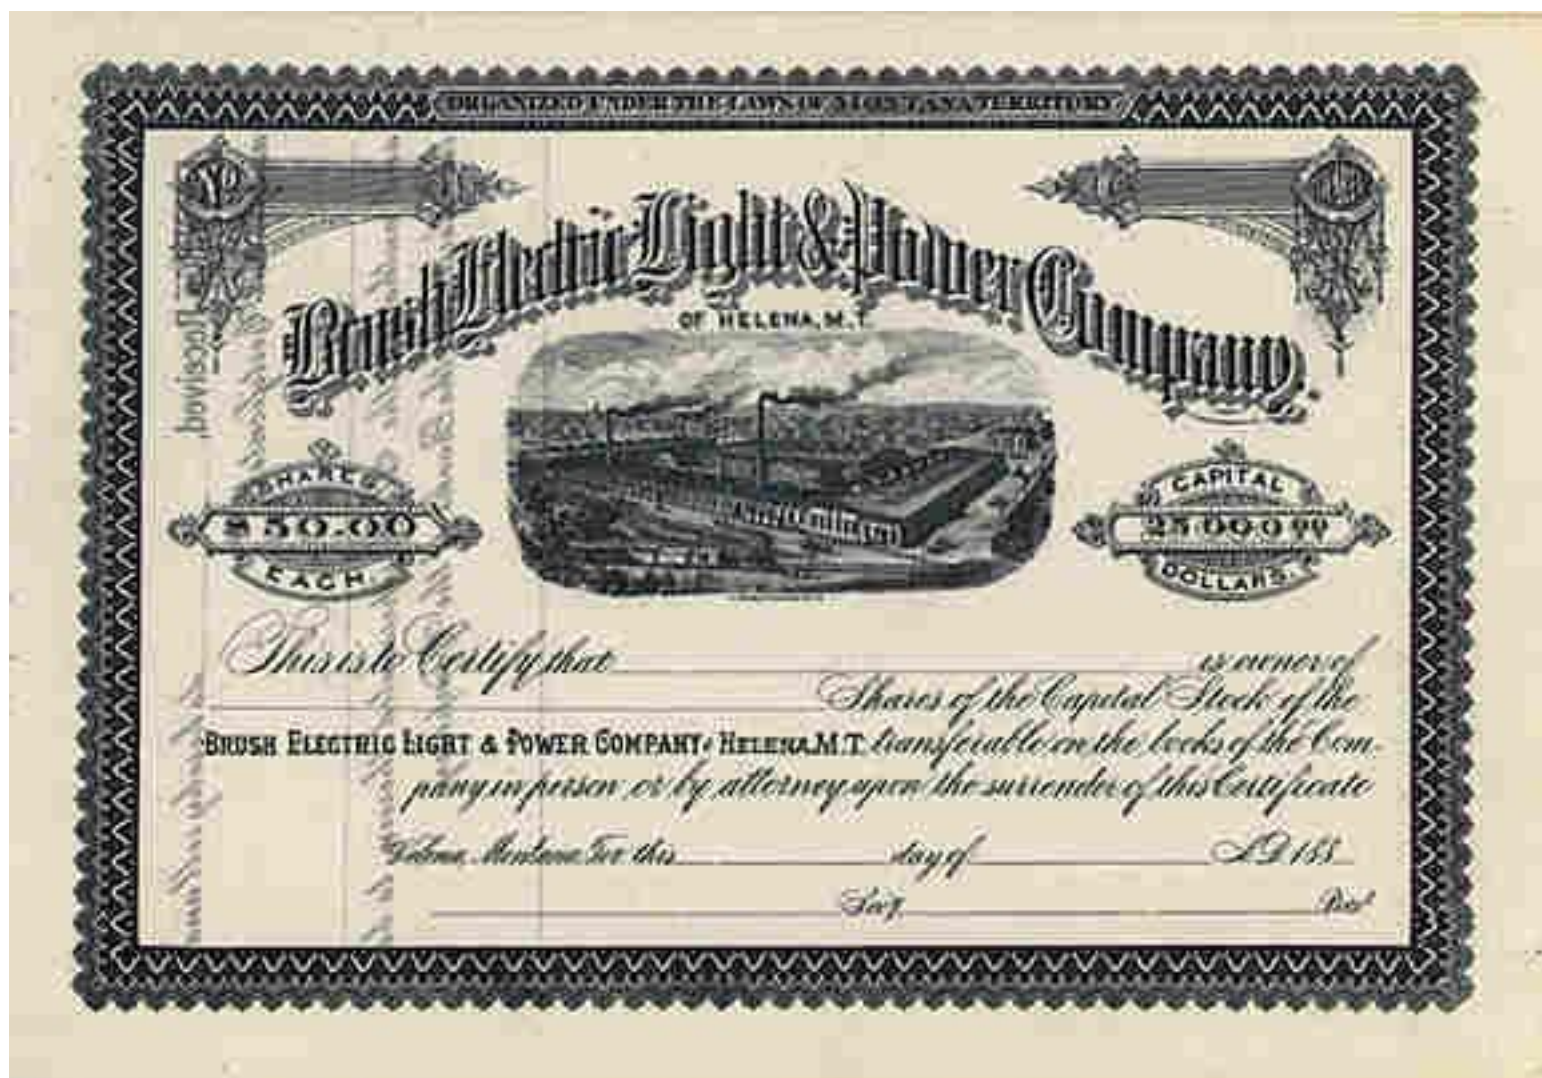 ORGANIZED UNDER THE LAWS OF MONTANA TERRITORY
No.
Brush Electric Light & Power Company
OF HELENA, M.T.
SHARES
$50.00
EACH.
CAPITAL
25,000.00
DOLLARS.
This is to Certify that is owner of
Shares of the Capital Stock of the
BRUSH ELECTRIC LIGHT & POWER COMPANY, HELENA, M.T. transferable on the books of the Com-
pany in person or by attorney upon the surrender of this Certificate
Helena, Montana Ter. this day of A.D. 188
Sec'y. Pres't
Received,